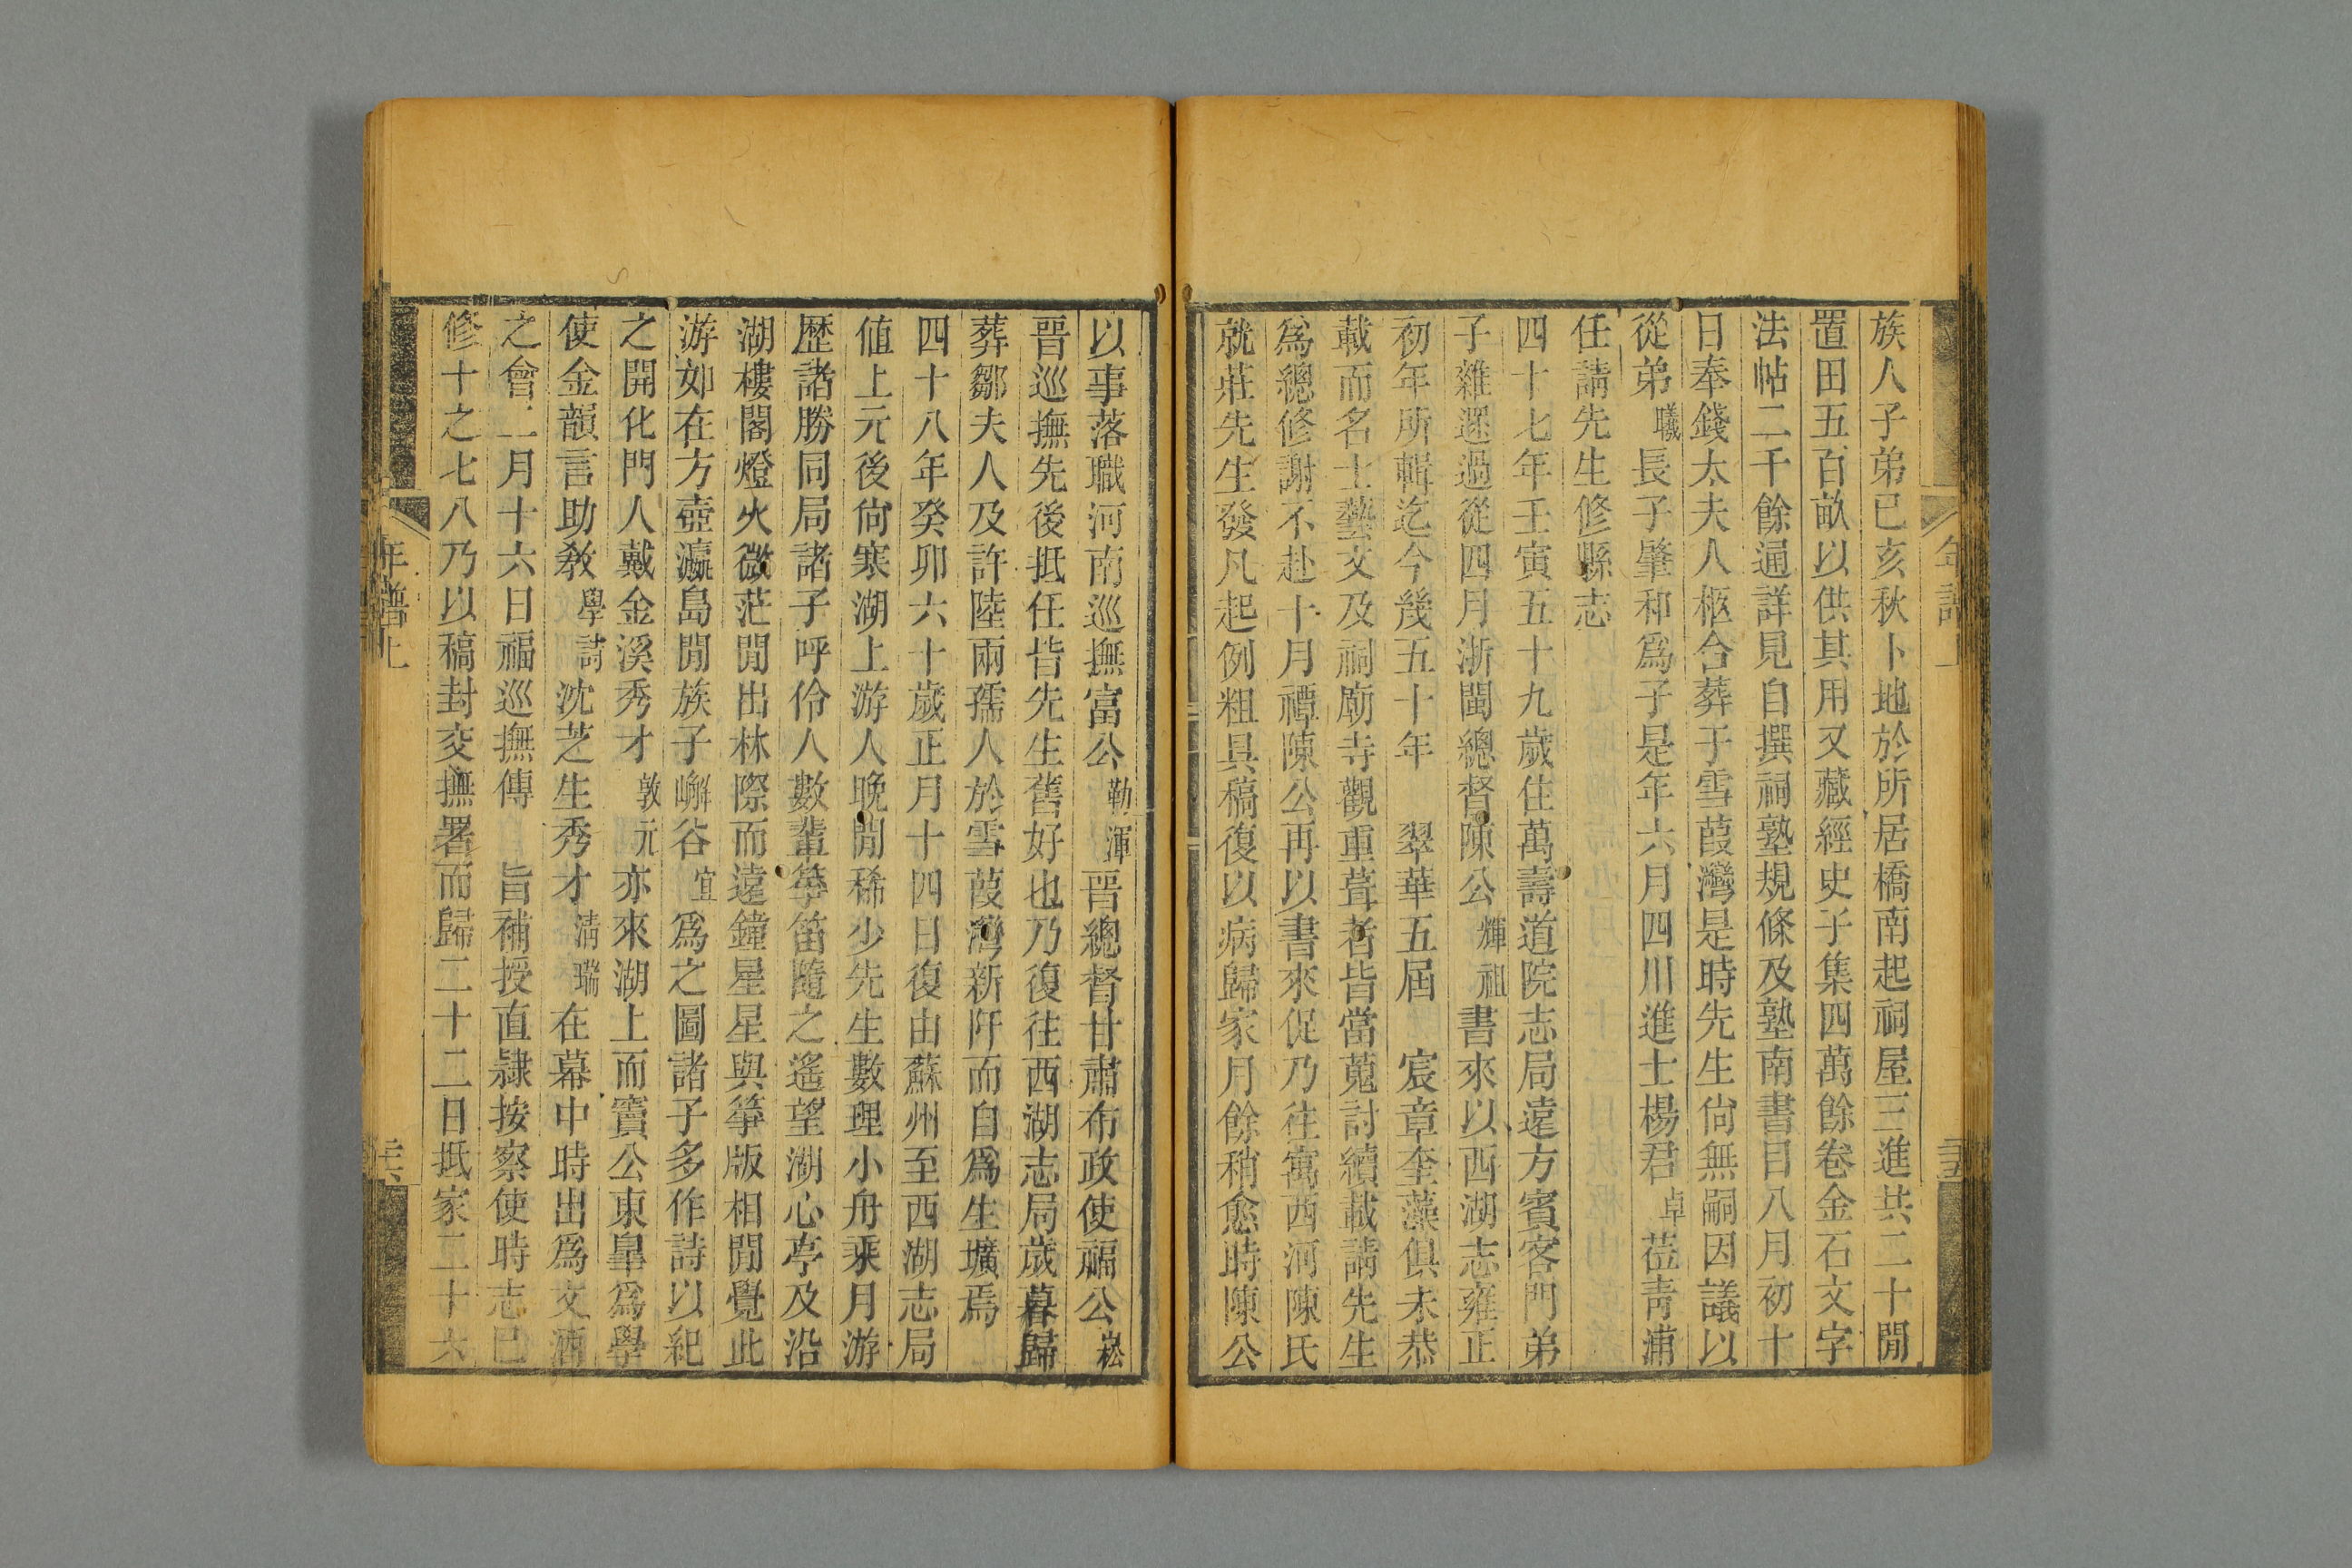 族人子弟已亥秋卜地於所居橋南起祠屋三進共二十閒
置田五百畝以供其用又藏經史子集四萬餘卷金石文字
法帖二千餘通詳見自撰祠塾規條及塾南書目八月初十
日奉錢太夫人柩合葬于雪葭灣是時先生尙無嗣因議以
從弟曦長子肇和爲子是年六月四川進士楊君卓莅靑浦
任請先生修縣志
四十七年壬寅五十九歲住萬壽道院志局遠方賓客門弟
子雜遝過從四月浙閩總督陳公輝祖書來以西湖志雍正
初年所輯迄今幾五十年 翠華五屆 宸章奎藻俱未恭
載而名士藝文及祠廟寺觀重葺者皆當蒐討續載請先生
爲總修謝不赴十月禫陳公再以書來促乃往寓西河陳氏
就莊先生發凡起例粗具稿復以病歸家月餘稍愈時陳公
年譜
以事落職河南巡撫富公勒渾晉總督甘肅布政使福公崧
晉巡撫先後抵任皆先生舊好也乃復往西湖志局歲暮歸
葬鄒夫人及許陸兩孺人於雪葭灣新阡而自爲生壙焉
四十八年癸卯六十歲正月十四日復由蘇州至西湖志局
値上元後尙寒湖上游人晚閒稀少先生數理小舟乘月游
歷諸勝同局諸子呼伶人數輩箏笛隨之遙望湖心亭及沿
湖樓閣燈火微茫閒出林際而遠鐘星星與箏版相閒覺此
游如在方壺瀛島閒族子嶰谷宜爲之圖諸子多作詩以紀
之開化門人戴金溪秀才敦元亦來湖上而竇公東臯爲學
使金韻言助敎學詩沈芝生秀才淸瑞在幕中時出爲文酒
之會二月十六日福巡撫傳 旨補授直隸按察使時志已
修十之七八乃以稿封交撫署而歸二十二日抵家二十六
年譜上